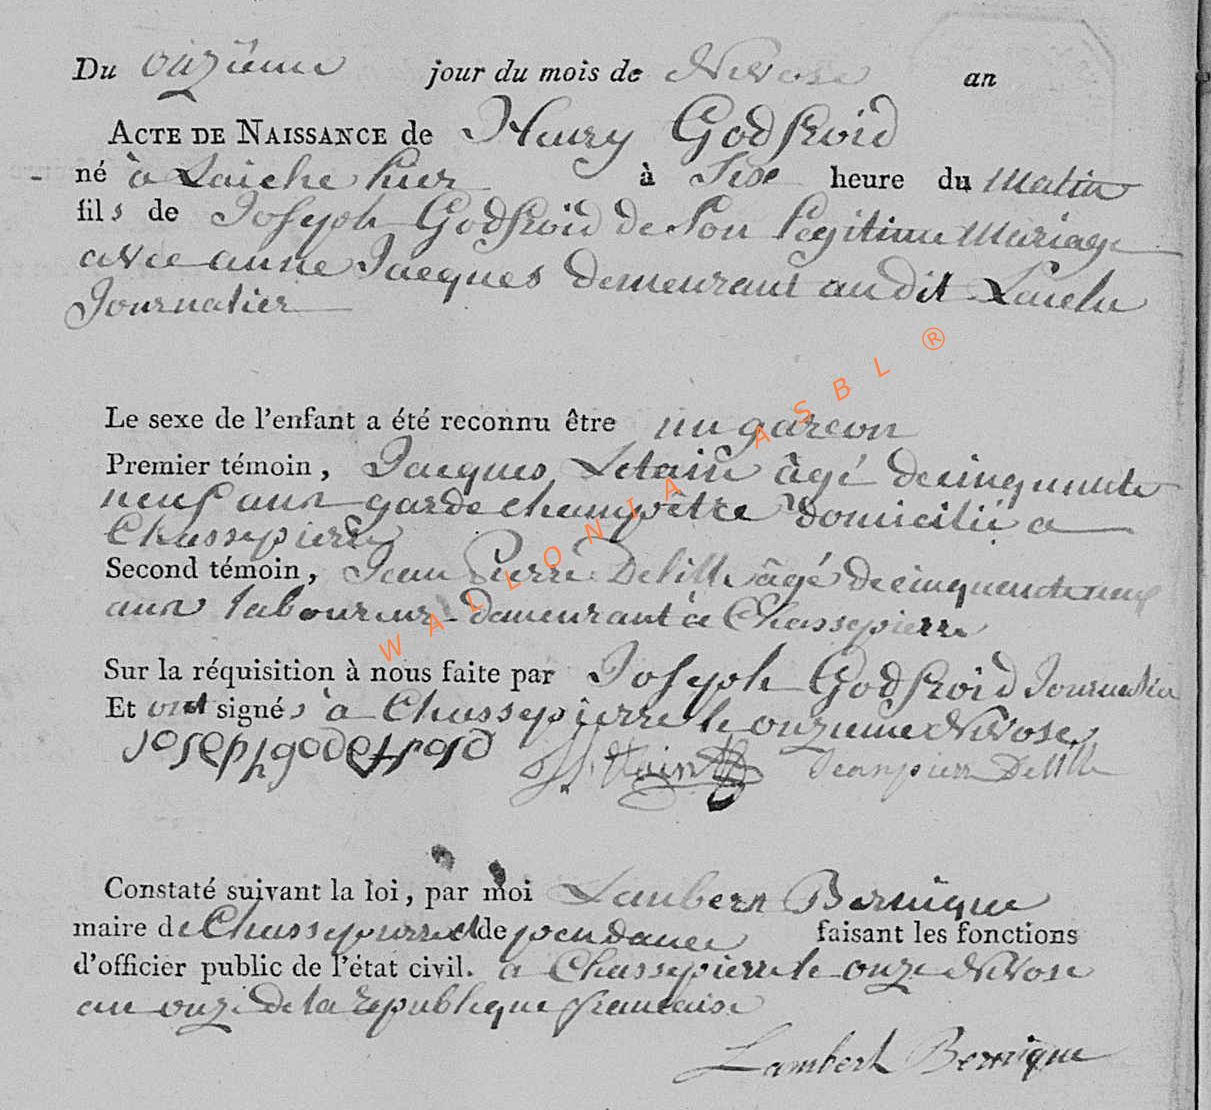 Du onzieme jour du mois de Nivose an
ACTE DE NAISSANCE de Henry Godfroid
né à Laiche hier à Six heure du Matin
fils de Joseph Godfroid de Son Legitime Mariage
avec anne Jacques demeurant audit Laiche
Journalier
Le sexe de l'enfant a été reconnu être un garcon
Premier témoin, Jacques Letain âgé de cinquante
neuf ans garde champêtre domicilié a
Chassepierre
Second témoin, Jean Pierre Delille âgé de cinquante neuf
ans laboureur demeurant à Chassepierre
Sur la réquisition à nous faite par Joseph Godfroid Journalier
Et ont signés à Chassepierre le onzieme Nivose
Joseph godefroid Jeanpierre Delille
Constaté suivant la loi, par moi Lambert Bernique
maire de Chassepierre et dependance faisant les fonctions
d'officier public de l'état civil. a Chassepierre le onze Nivose
an onze de la republique francaise
Lambert Bernique
WALLONIA ASBL ®